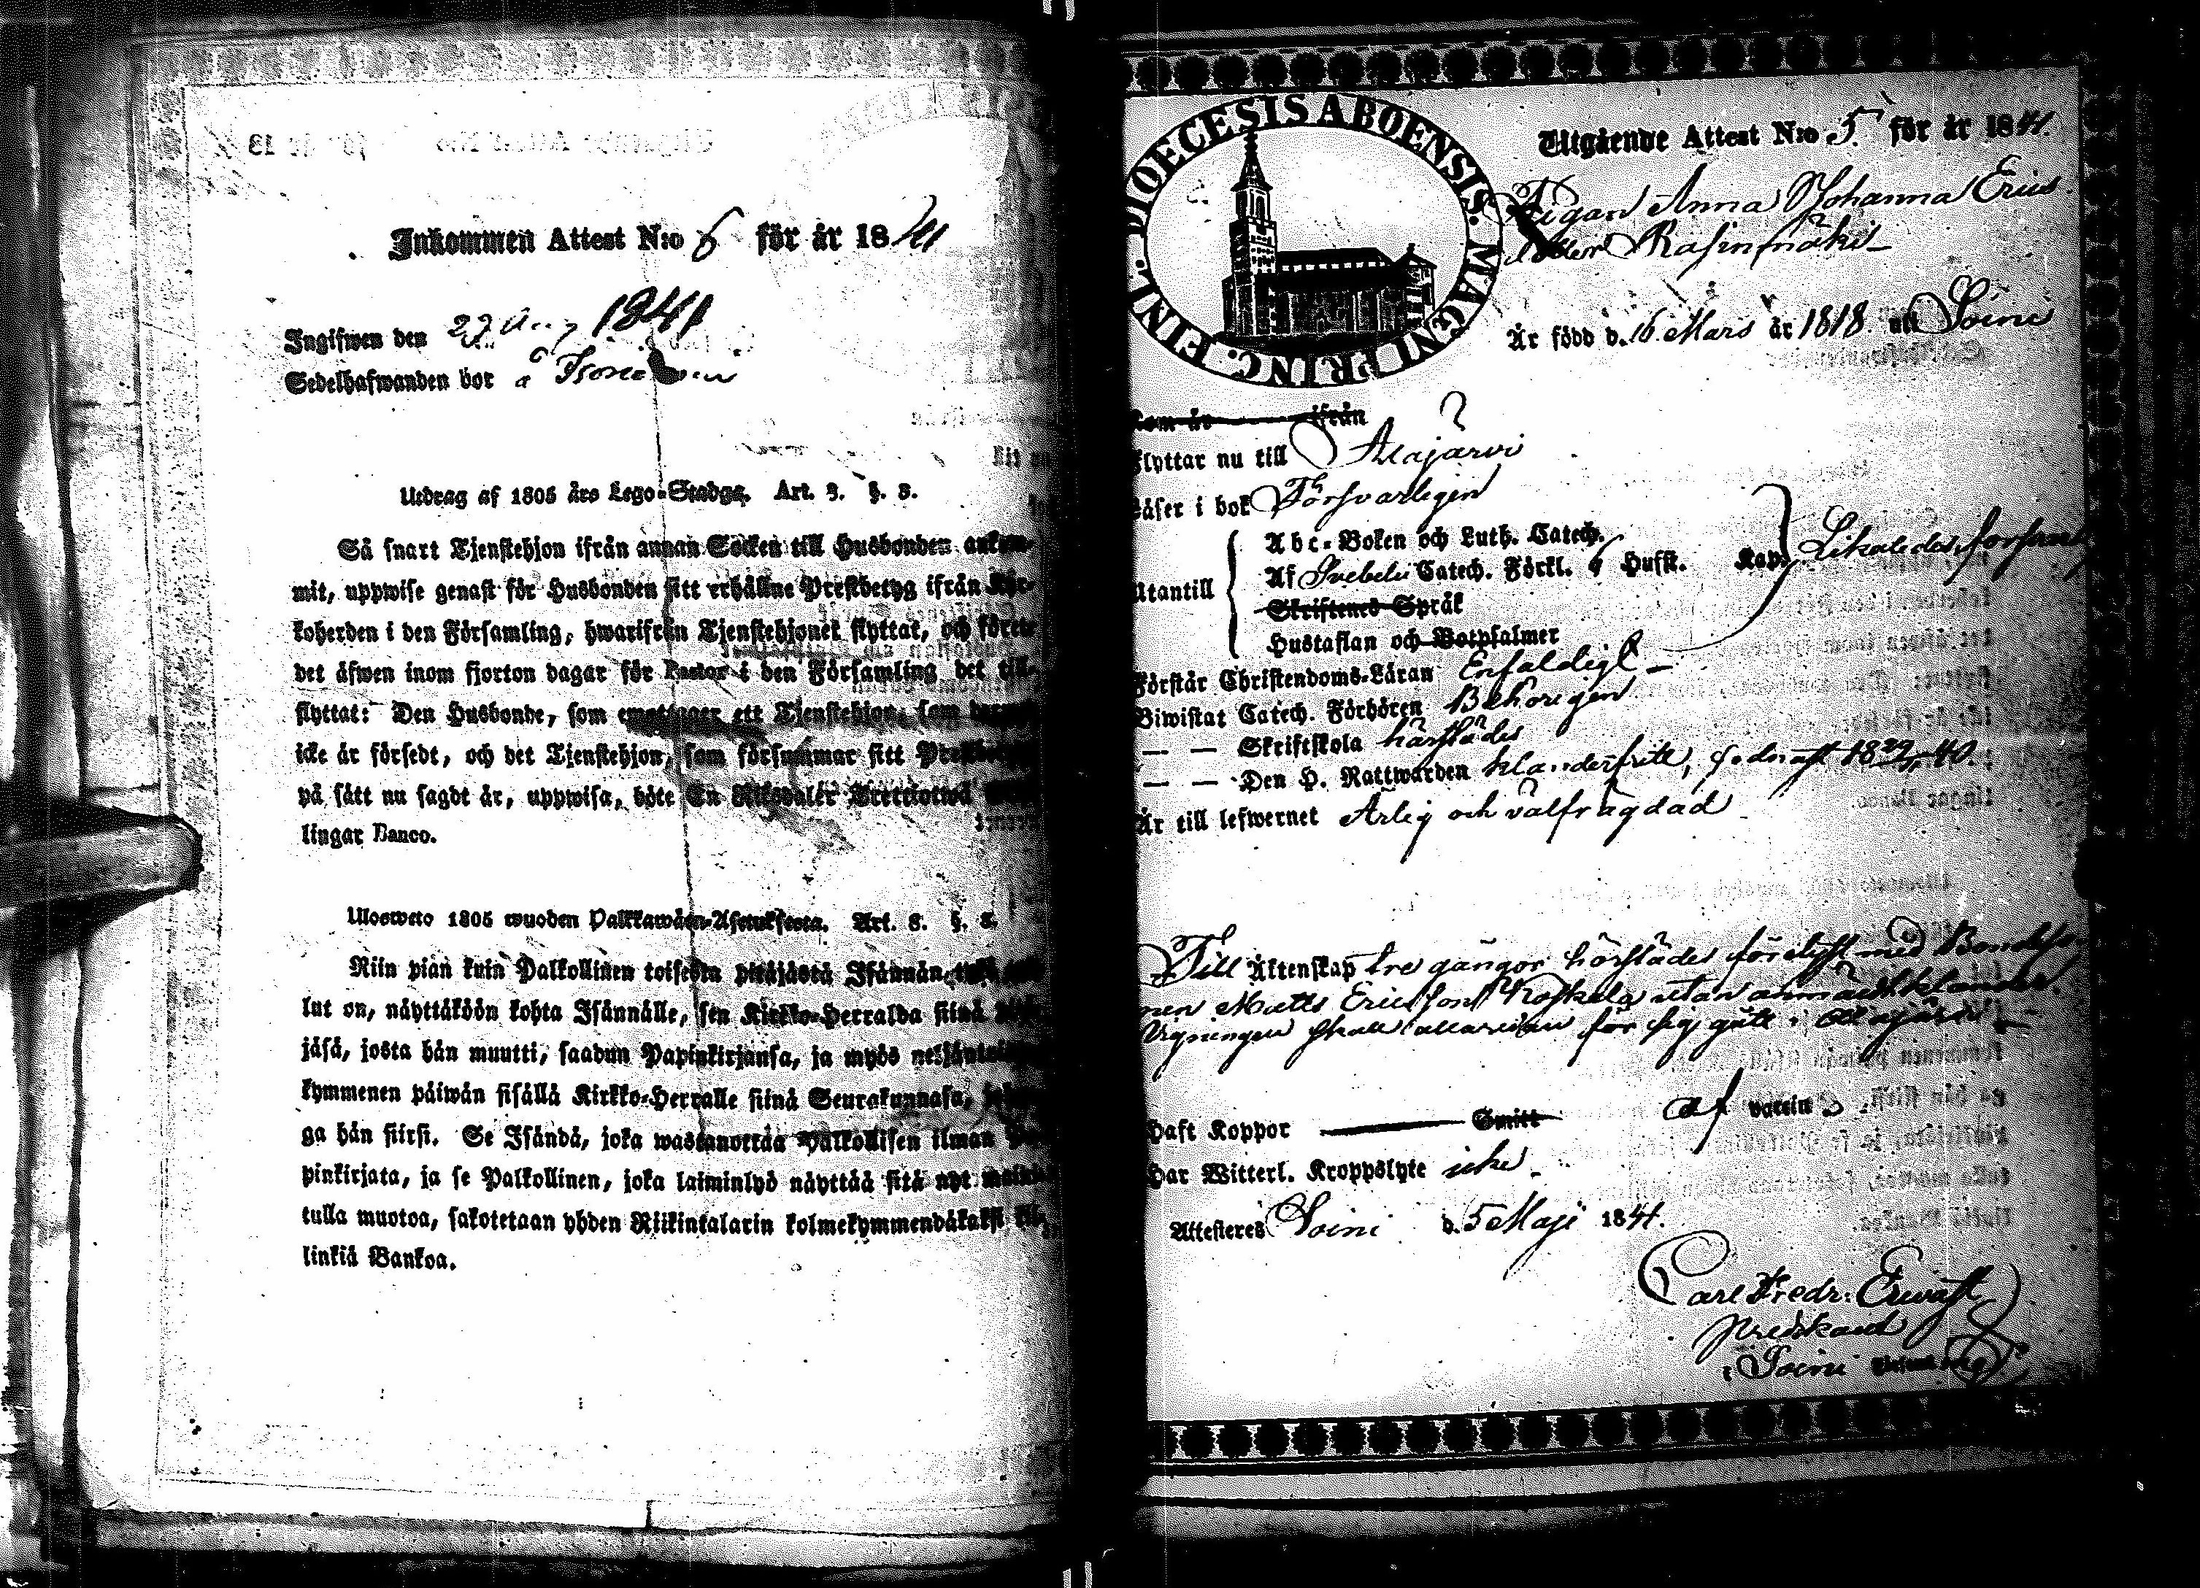 Inkommen Attest N:o 6 för år 1841
Ingifwen den 29 Aug 1841
Sedelhafwanden bor å
Utdrag af 1805 års Lego-Stadga. Art. 3. §. 8.
Så snart Tjenstehjon ifrån annan Socken till Husbonden ankom-
mit, uppwise genast för Husbonden sitt erhållne Prestbetyg ifrån Kyr-
koherden i den Församling, hwarifrån Tjenstehjonet flyttat, och förete
det äfwen inom fjorton dagar för Pastor i den Församling det till-
flyttat: Den Husbonde, som emottager ett Tjenstehjon, som
icke är försedt, och det Tjenstehjon, som försummar sitt
på sätt nu sagdt är, uppwisa, böte En Riksdaler Trettiotwå
lingar Banco.
Ulosweto 1805 wuoden Palkkawäen-Asetuksesta. Art. 3. §. 8.
Niin pian kuin Palkollinen toisesta pitäjästä Isännän
lut on, näyttäköön kohta Isännälle, sen Kirkko-Herralda siinä
jäsä, josta hän muutti, saadun Papinkirjansa, ja myös neljäntoista
kymmenen päiwän sisällä Kirkko-Herralle siinä Seurakunnasa,
ga hän siirsi. Se Isändä, joka wastanottaa Palkollisen ilman
pinkirjata, ja se Palkollinen, joka laiminlyö näyttää sitä nyt
tulla muotoa, sakotetaan yhden Riikintalarin kolmekymmendäkaksi
linkiä Bankoa.
DIOECESIS ABOENSIS. MAGNI PRINC. FINL.
Utgående Attest N:o 5 för år 1841.
Pigan Anna Johanna Erics
dotter Rasinmäki
Är född d. 16 Mars år 1818 uti Soini
Kom år ifrån
flyttar nu till Alajärvi
Läser i bok Försvarligen
Abc-Boken och Luth. Catech.
Utantill Af Svebelii Catech. Förkl. 6 Hufst. Kap. Likaledes
Skriftenes Språk
Hustaflan och Botpsalmer
Förstår Christendoms-Läran Enfaldigt
Biwistat Catech. Förhören Behörigen
— — Skriftskola härstädes
— — Den H. Nattwarden klanderfritt,
Är till lefwernet Ärlig och välfrägdad
Till Äktenskap tre gångor härstädes förelyst med Bondeso-
nen Matts Ericsson Koskela utan anmäldt klander.
Vigningen skall för sig gått i Alajärvi
Haft Koppor Smitt af vaccin
Har Witterl. Kroppslyte icke
Attesteres Soini d. 5 Maji 1841.
Carl Fredr: Erwast
Predikant
i Soini